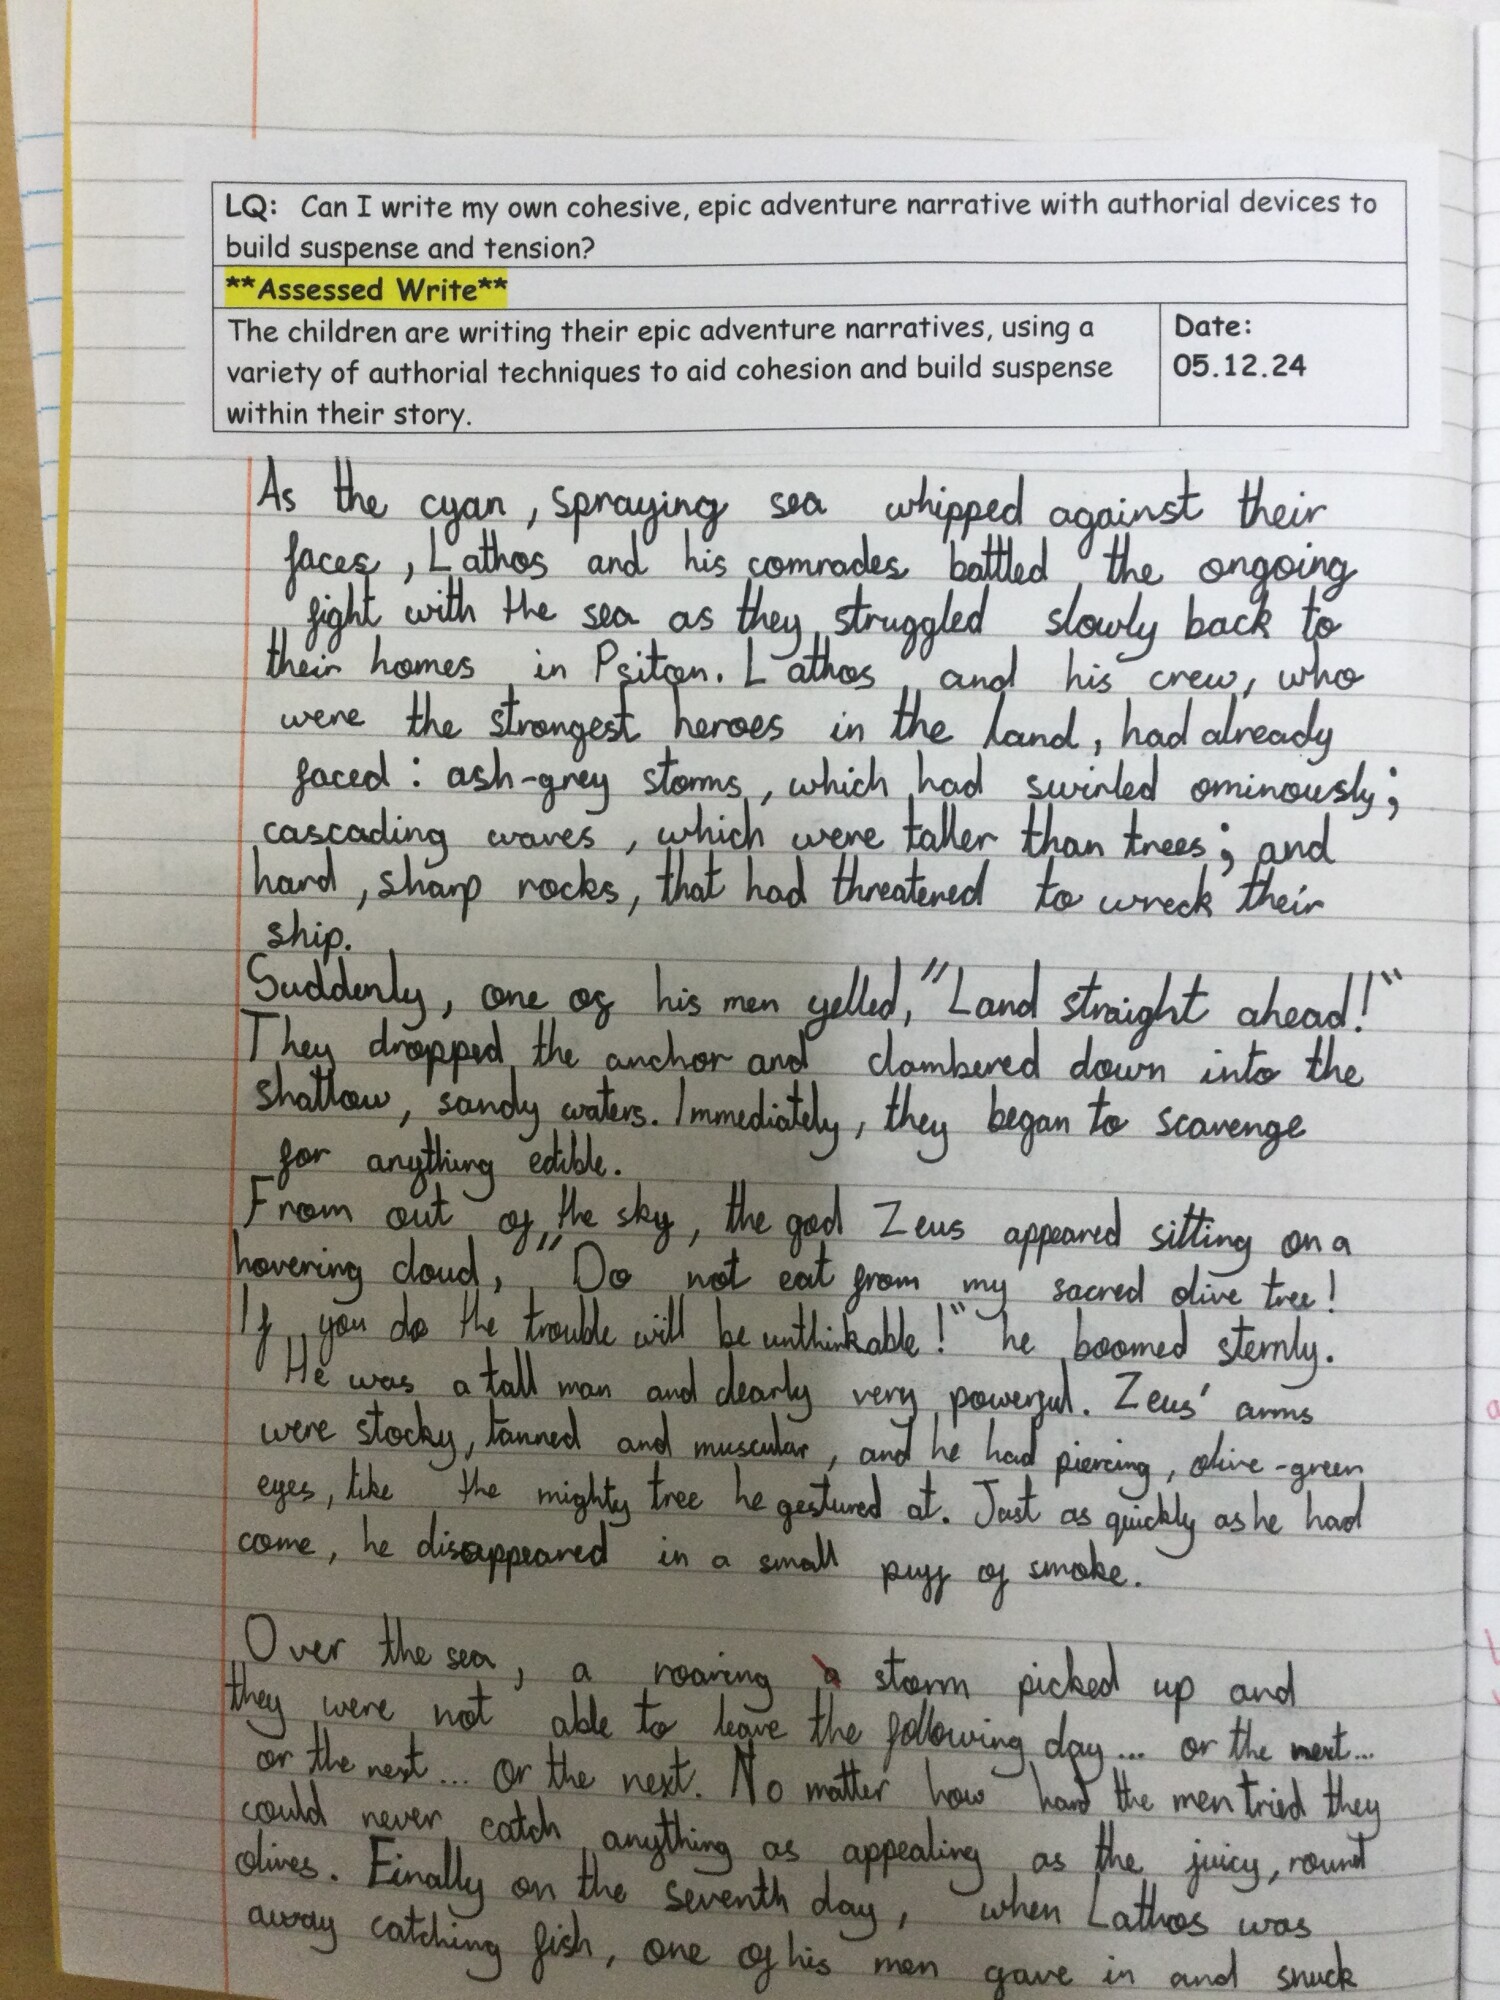 LQ: Can I write my own cohesive, epic adventure narrative with authorial devices to
build suspense and tension?
**Assessed Write**
The children are writing their epic adventure narratives, using a
variety of authorial techniques to aid cohesion and build suspense
within their story.
Date:
05.12.24
As the cyan, spraying sea whipped against their
faces, Lathos and his comrades battled the ongoing
fight with the sea as they struggled slowly back to
their homes in Psiton. Lathos and his crew, who
were the strongest heroes in the land, had already
faced: ash-grey storms, which had swirled ominously;
cascading waves, which were taller than trees; and
hard, sharp rocks, that had threatened to wreck their
ship.
Suddenly, one of his men yelled, "Land straight ahead!"
They dropped the anchor and clambered down into the
shallow, sandy waters. Immediately, they began to scavenge
for anything edible.
From out of the sky, the god Zeus appeared sitting on a
hovering cloud, "Do not eat from my sacred olive tree!
If you do the trouble will be unthinkable!" he boomed sternly.
He was a tall man and clearly very powerful. Zeus' arms
were stocky, tanned and muscular, and he had piercing, olive-green
eyes, like the mighty tree he gestured at. Just as quickly as he had
come, he disappeared in a small puff of smoke.
Over the sea, a roaring storm picked up and
they were not able to leave the following day... or the next...
or the next... or the next. No matter how hard the men tried they
could never catch anything as appealing as the juicy, round
olives. Finally on the seventh day, when Lathos was
away catching fish, one of his men gave in and snuck